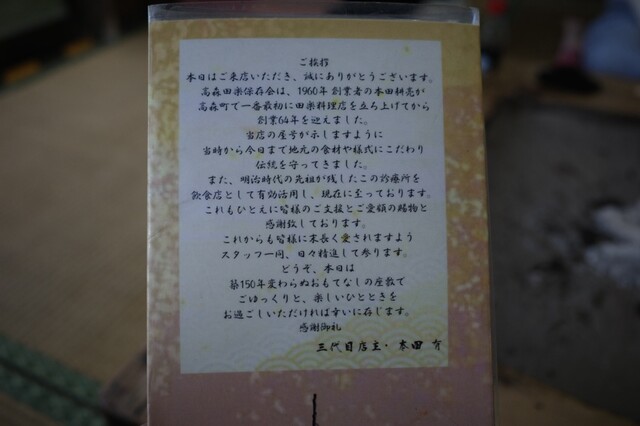 ご挨拶
本日はご来店いただき、誠にありがとうございます。
高森田楽保存会は、1960年創業者の本田耕亮が
高森町で一番最初に田楽料理店を立ち上げてから
創業64年を迎えました。
当店の屋号が示しますように
当時から今日まで地元の食材や様式にこだわり
伝統を守ってきました。
また、明治時代の先祖が残したこの診療所を
飲食店として有効活用し、現在に至っております。
これもひとえに皆様のご支援とご愛顧の賜物と
感謝致しております。
これからも皆様に末長く愛されますよう
スタッフ一同、日々精進して参ります。
どうぞ、本日は
築150年変わらぬおもてなしの座敷で
ごゆっくりと、楽しいひとときを
お過ごしいただければ幸いに存じます。
感謝御礼
三代目店主・本田